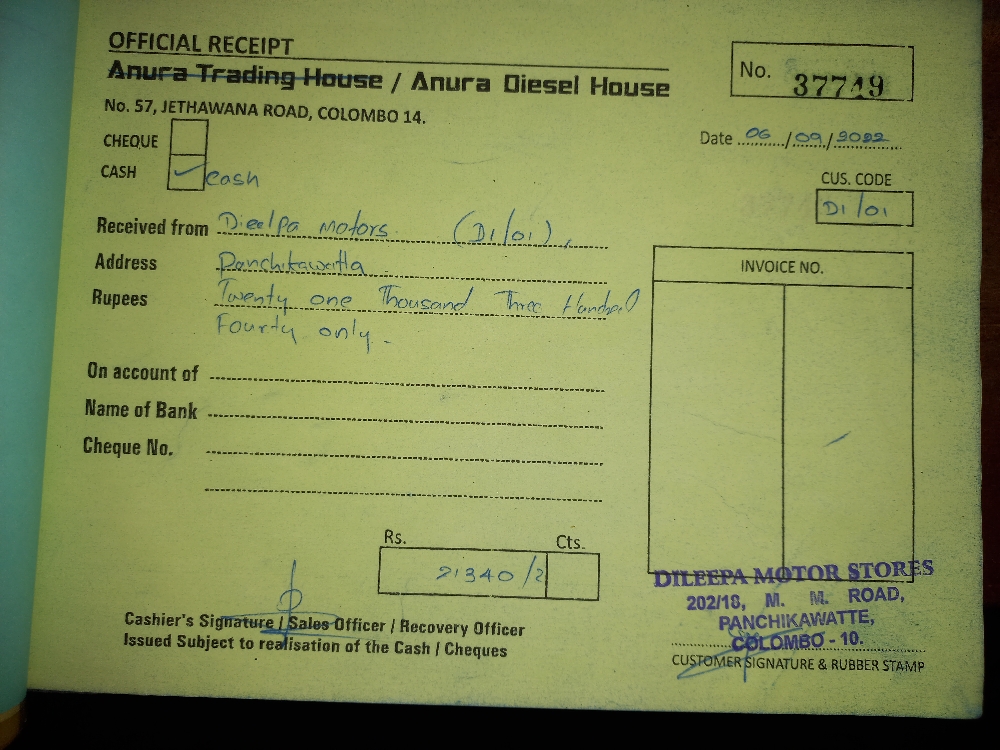 OFFICIAL RECEIPT
Anura Trading House / Anura Diesel House
No. 37749
No. 57, JETHAWANA ROAD, COLOMBO 14.
Date 06/09/2022
CHEQUE
CASH cash
CUS. CODE
D1/01
Received from Dieelpa Motors (D1/01),
Address Panchikawatta
Rupees Twenty one Thousand Three Hundred
Fourty only.
INVOICE NO.
On account of
Name of Bank
Cheque No.
Rs. Cts.
21340/
DILEEPA MOTOR STORES
202/18, M. M. ROAD,
PANCHIKAWATTE,
COLOMBO - 10.
Cashier's Signature / Sales Officer / Recovery Officer
Issued Subject to realisation of the Cash / Cheques
CUSTOMER SIGNATURE & RUBBER STAMP